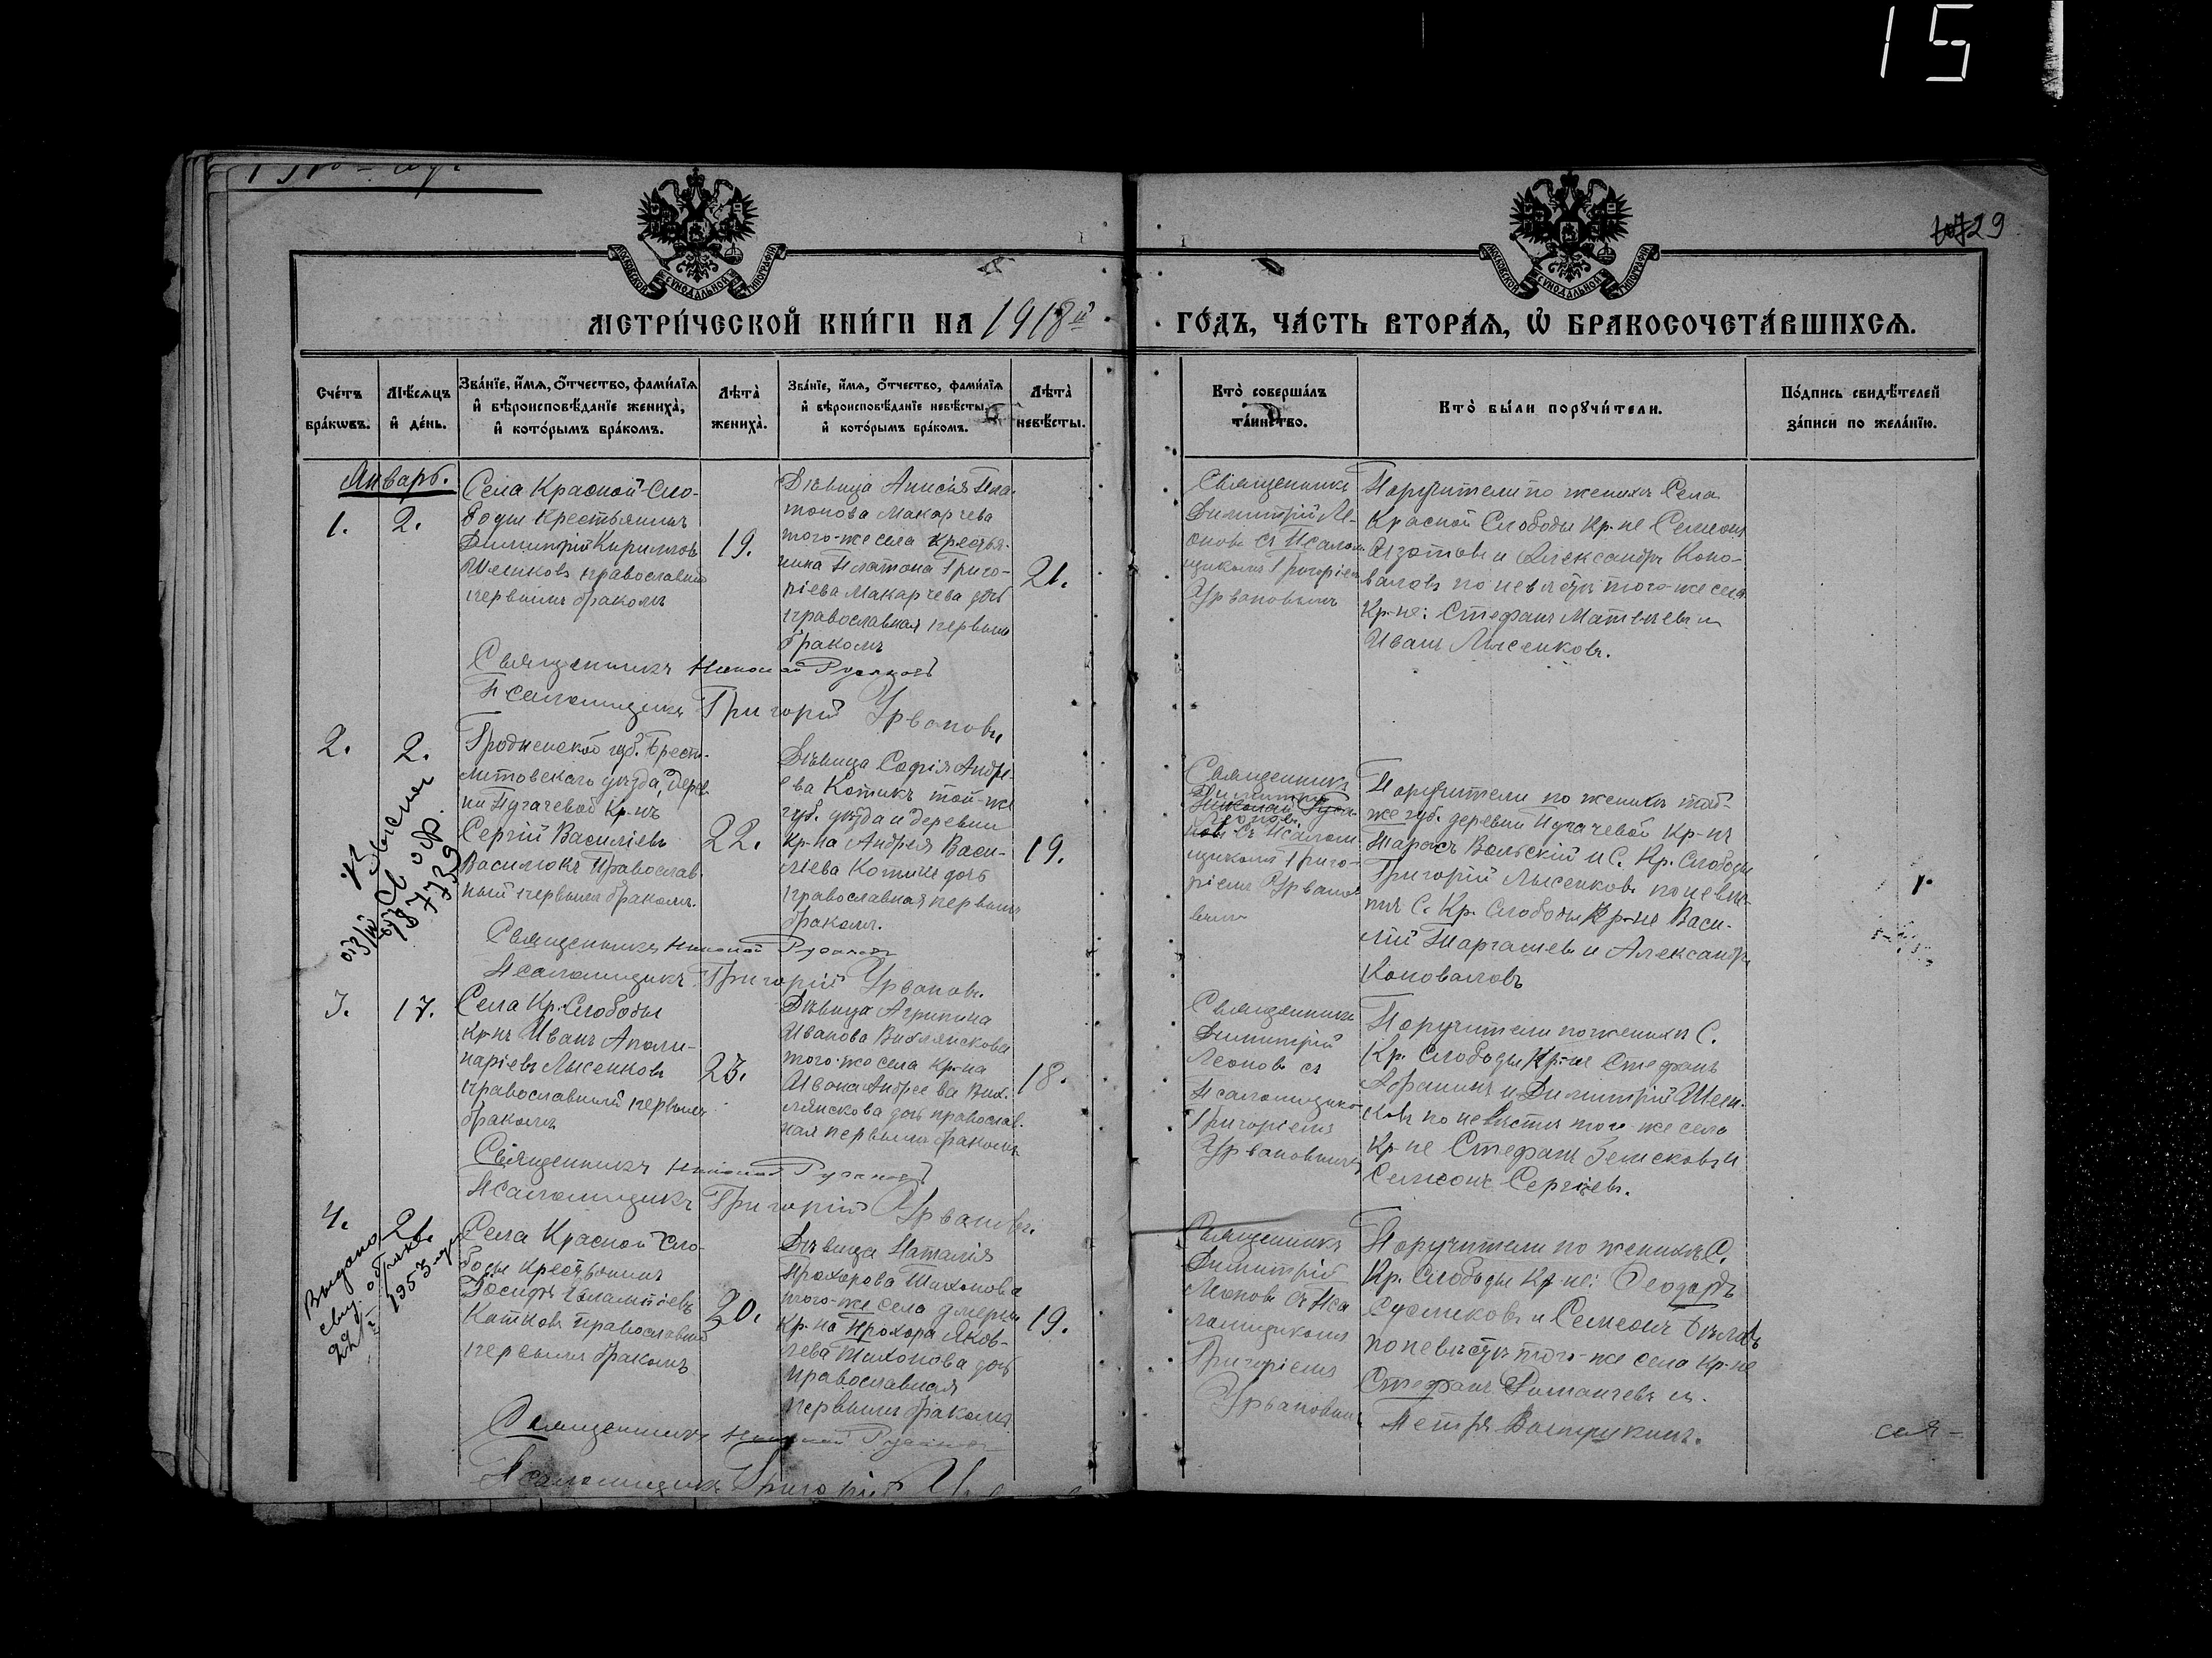 15
29
МОСКОВСКОЙ СѴНОДАЛЬНОЙ ТИПОГРАФІИ
МОСКОВСКОЙ СѴНОДАЛЬНОЙ ТИПОГРАФІИ
МЕТРИ́ЧЕСКОЙ КНИ́ГИ НА 1918й
ГО́ДЪ, ЧА́СТЬ ВТОРА́Я, Ѡ҆ БРАКОСОЧЕТА́ВШИХСЯ.
Сче́тъ бра́кѡвъ.
Мѣ́сяцъ и҆ де́нь.
Зва́нїе, и҆́мя, ѻ҆́тчество, фами́лїя
и҆ вѣроисповѣ́данїе жениха̀,
и҆ кото́рымъ бра́комъ.
Лѣта̀ жениха̀.
Зва́нїе, и҆́мя, ѻ҆́тчество, фами́лїя
и҆ вѣроисповѣ́данїе невѣ́сты,
и҆ кото́рымъ бра́комъ.
Лѣта̀ невѣ́сты.
Кто̀ соверша́лъ
та́инство.
Кто̀ бы́ли порꙋчи́тели.
По́дпись свидѣ́телей
за́писи по жела́нїю.
Январь.
1.
2.
Села Красной Сло-
боды Крестьянинъ
Димитрій Кирилловъ
Шелковъ православный
первымъ бракомъ
19.
Дѣвица Анисія Пла-
тонова Макарчева
того-же села крестья-
нина Платона Григо-
ріева Макарчева дочь
православная первымъ
бракомъ
21.
Священникъ
Димитрій Ле-
оновъ съ Псалом-
щикомъ Григоріемъ
Урвановымъ
Поручители по женихѣ Села
Красной Слободы Кр-не Семеонъ
Изотовъ и Александръ Коно-
валовъ по невѣстѣ того-же села
Кр-не: Стефанъ Матвѣевъ и
Иванъ Лысенковъ.
Священникъ Николай Русановъ
Псаломщикъ Григорій Урвановъ
2.
2.
Гродненской губ. Брест-
литовскаго уѣзда, дерев-
ни Пугачевой Кр-нъ
Сергій Василіевъ
Василюкъ Православ-
ный первымъ бракомъ.
22.
Дѣвица Софія Андре-
ева Котикъ той-же
губ. уѣзда и деревни
кр-на Андрея Васи-
ліева Котика дочь
православная первымъ
бракомъ.
19.
Священникъ
Димитрій
Николай Руса-
Леоновъ
новъ съ Псалом-
щикомъ Григо-
ріемъ Урвано-
вымъ
Поручители по женихѣ той-
же губ. деревни Пугачевой Кр-нъ
Тарасъ Вольскій и С. Кр. Слободы
Григорій Лысенковъ по невѣс-
тѣ С. Кр. Слободы Кр-не Васи-
лій Таргашевъ и Александръ
Коноваловъ
Священникъ Николай Русановъ
Псаломщикъ Григорій Урвановъ.
3.
17.
Села Кр. Слободы
кр-нъ Иванъ Аполи-
наріевъ Лысенковъ
православный первымъ
бракомъ
23.
Дѣвица Агрипина
Иванова Вихлянскова
того-же села кр-на
Ивана Андреева Вих-
лянскова дочь православ-
ная первымъ бракомъ
18.
Священникъ
Димитрій
Леоновъ съ
Псаломщикомъ
Григоріемъ
Урвановымъ
Поручители по женихѣ С.
Кр. Слободы Кр-не Стефанъ
Афанинъ и Димитрій Шел-
ковъ по невѣстѣ того-же села
Кр-не Стефанъ Земсковъ и
Семеонъ Сергѣевъ.
Священникъ Николай Русановъ
Псаломщикъ Григорій Урвановъ.
4.
21.
Выдано
свид. о браке
1953 г.
Села Красной Сло-
боды Крестьянинъ
Іосифъ
Катковъ православный
первымъ бракомъ
20.
Дѣвица Наталія
Прохорова Тихонова
того-же села умерш
Кр-на Прохора Яков-
лева Тихонова дочь
православная
первымъ бракомъ
19.
Священникъ
Димитрій
Леоновъ съ Пса-
ломщикомъ
Григоріемъ
Урвановымъ
Поручители по женихѣ С.
Кр. Слободы Кр-не: Феодоръ
Сусликовъ и Семеонъ Бѣловъ
по невѣстѣ того-же села Кр-не
Стефанъ и
Петръ Вострукинъ.
Священникъ Николай Русановъ
Псаломщикъ Григорій